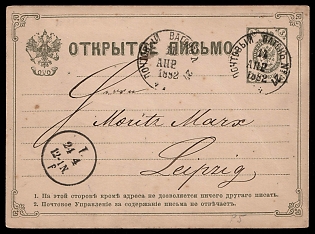 ОТКРЫТОЕ ПИСЬМО.
ПОЧТОВЫЙ ВАГОНЪ
АПР
1882
ПОЧТОВЫЙ ВАГОНЪ
АПР
1882
Herrn
Moritz Marx
Leipzig
I
24 4
12-1N.
F
1. На этой стороне кроме адреса не дозволяется ничего другаго писать.
2. Почтовое Управление за содержание письма не отвѣчаетъ.